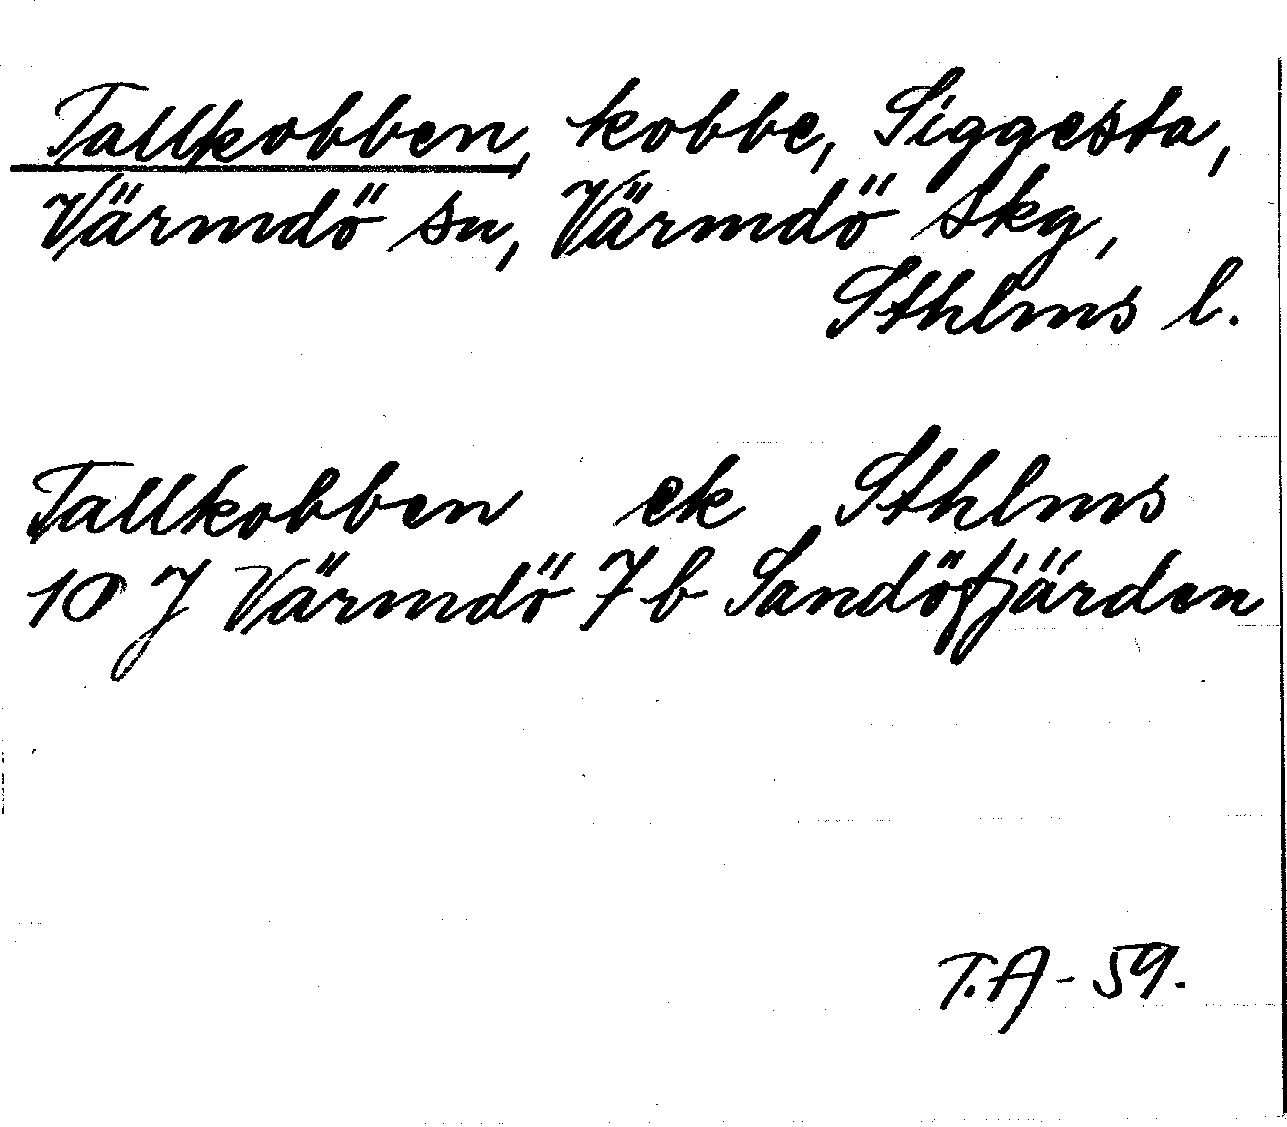 Tallkobben, kobbe, Siggesta,
Värmdö sn, Värmdö skg,
Sthlms l.
Tallkobben ek Sthlms
10 J Värmdö 7 b Sandöfjärden
T.A - 59.